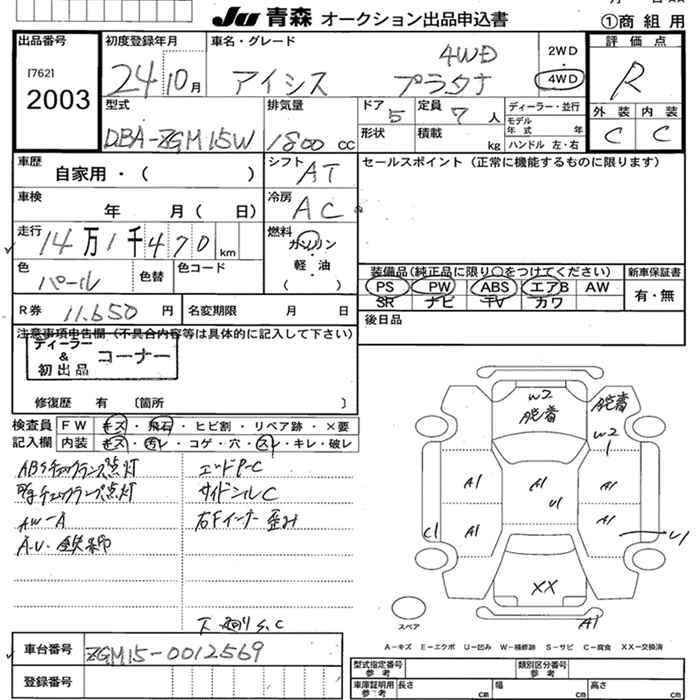 Ju 青森 オークション出品申込書
①商組用
出品番号
[762]
2003
初度登録年月
24 10月
車名・グレード
アイシス プラタナ 4WD
2WD
4WD
評価点
R
外装 内装
C C
型式
DBA-ZGM15W
排気量
1800 CC
ドア
5
定員
7人
ディーラー・並行
モデル年式 年
ハンドル 左・右
形状
積載
kg
車歴
自家用・( )
シフト
AT
セールスポイント (正常に機能するものに限ります)
車検
年 月( 日)
冷房
AC
走行
14万1千470km
燃料
ガソリン
・
軽・油
( )
色
パール
色替
色コード
装備品(純正品に限り○をつけてください)
新車保証書
PS PW ABS エアB AW
SR ナビ TV カワ
有・無
R券
11.650円
名変期限 月 日
後日品
注意事項申告欄 (不具合内容等は具体的に記入して下さい)
ディーラー
&
初出品
コーナー
修復歴 有 〔箇所 〕
検査員
記入欄
FW キズ・飛石・ヒビ割・リペア跡・×要
内装 キズ・汚レ・コゲ・穴・スレ・キレ・破レ
ABSチェックランプ点灯
エンドP-C
チェックランプ点灯
サイドシルC
AW-A
右Fインナー歪み
下廻りS.C
W2
脱着
脱着
W2
1
A1
A1
U1
A1
A1
A1
C1
U1
XX
A1
スペア
A-キズ E-エクボ U-凹み W-補修跡 S-サビ C-腐食 XX-交換済
車台番号
ZGM15-0012569
登録番号
型式指定番号
参考
類別区分番号
参考
車庫証明用
参考
長さ cm
幅 cm
高さ cm